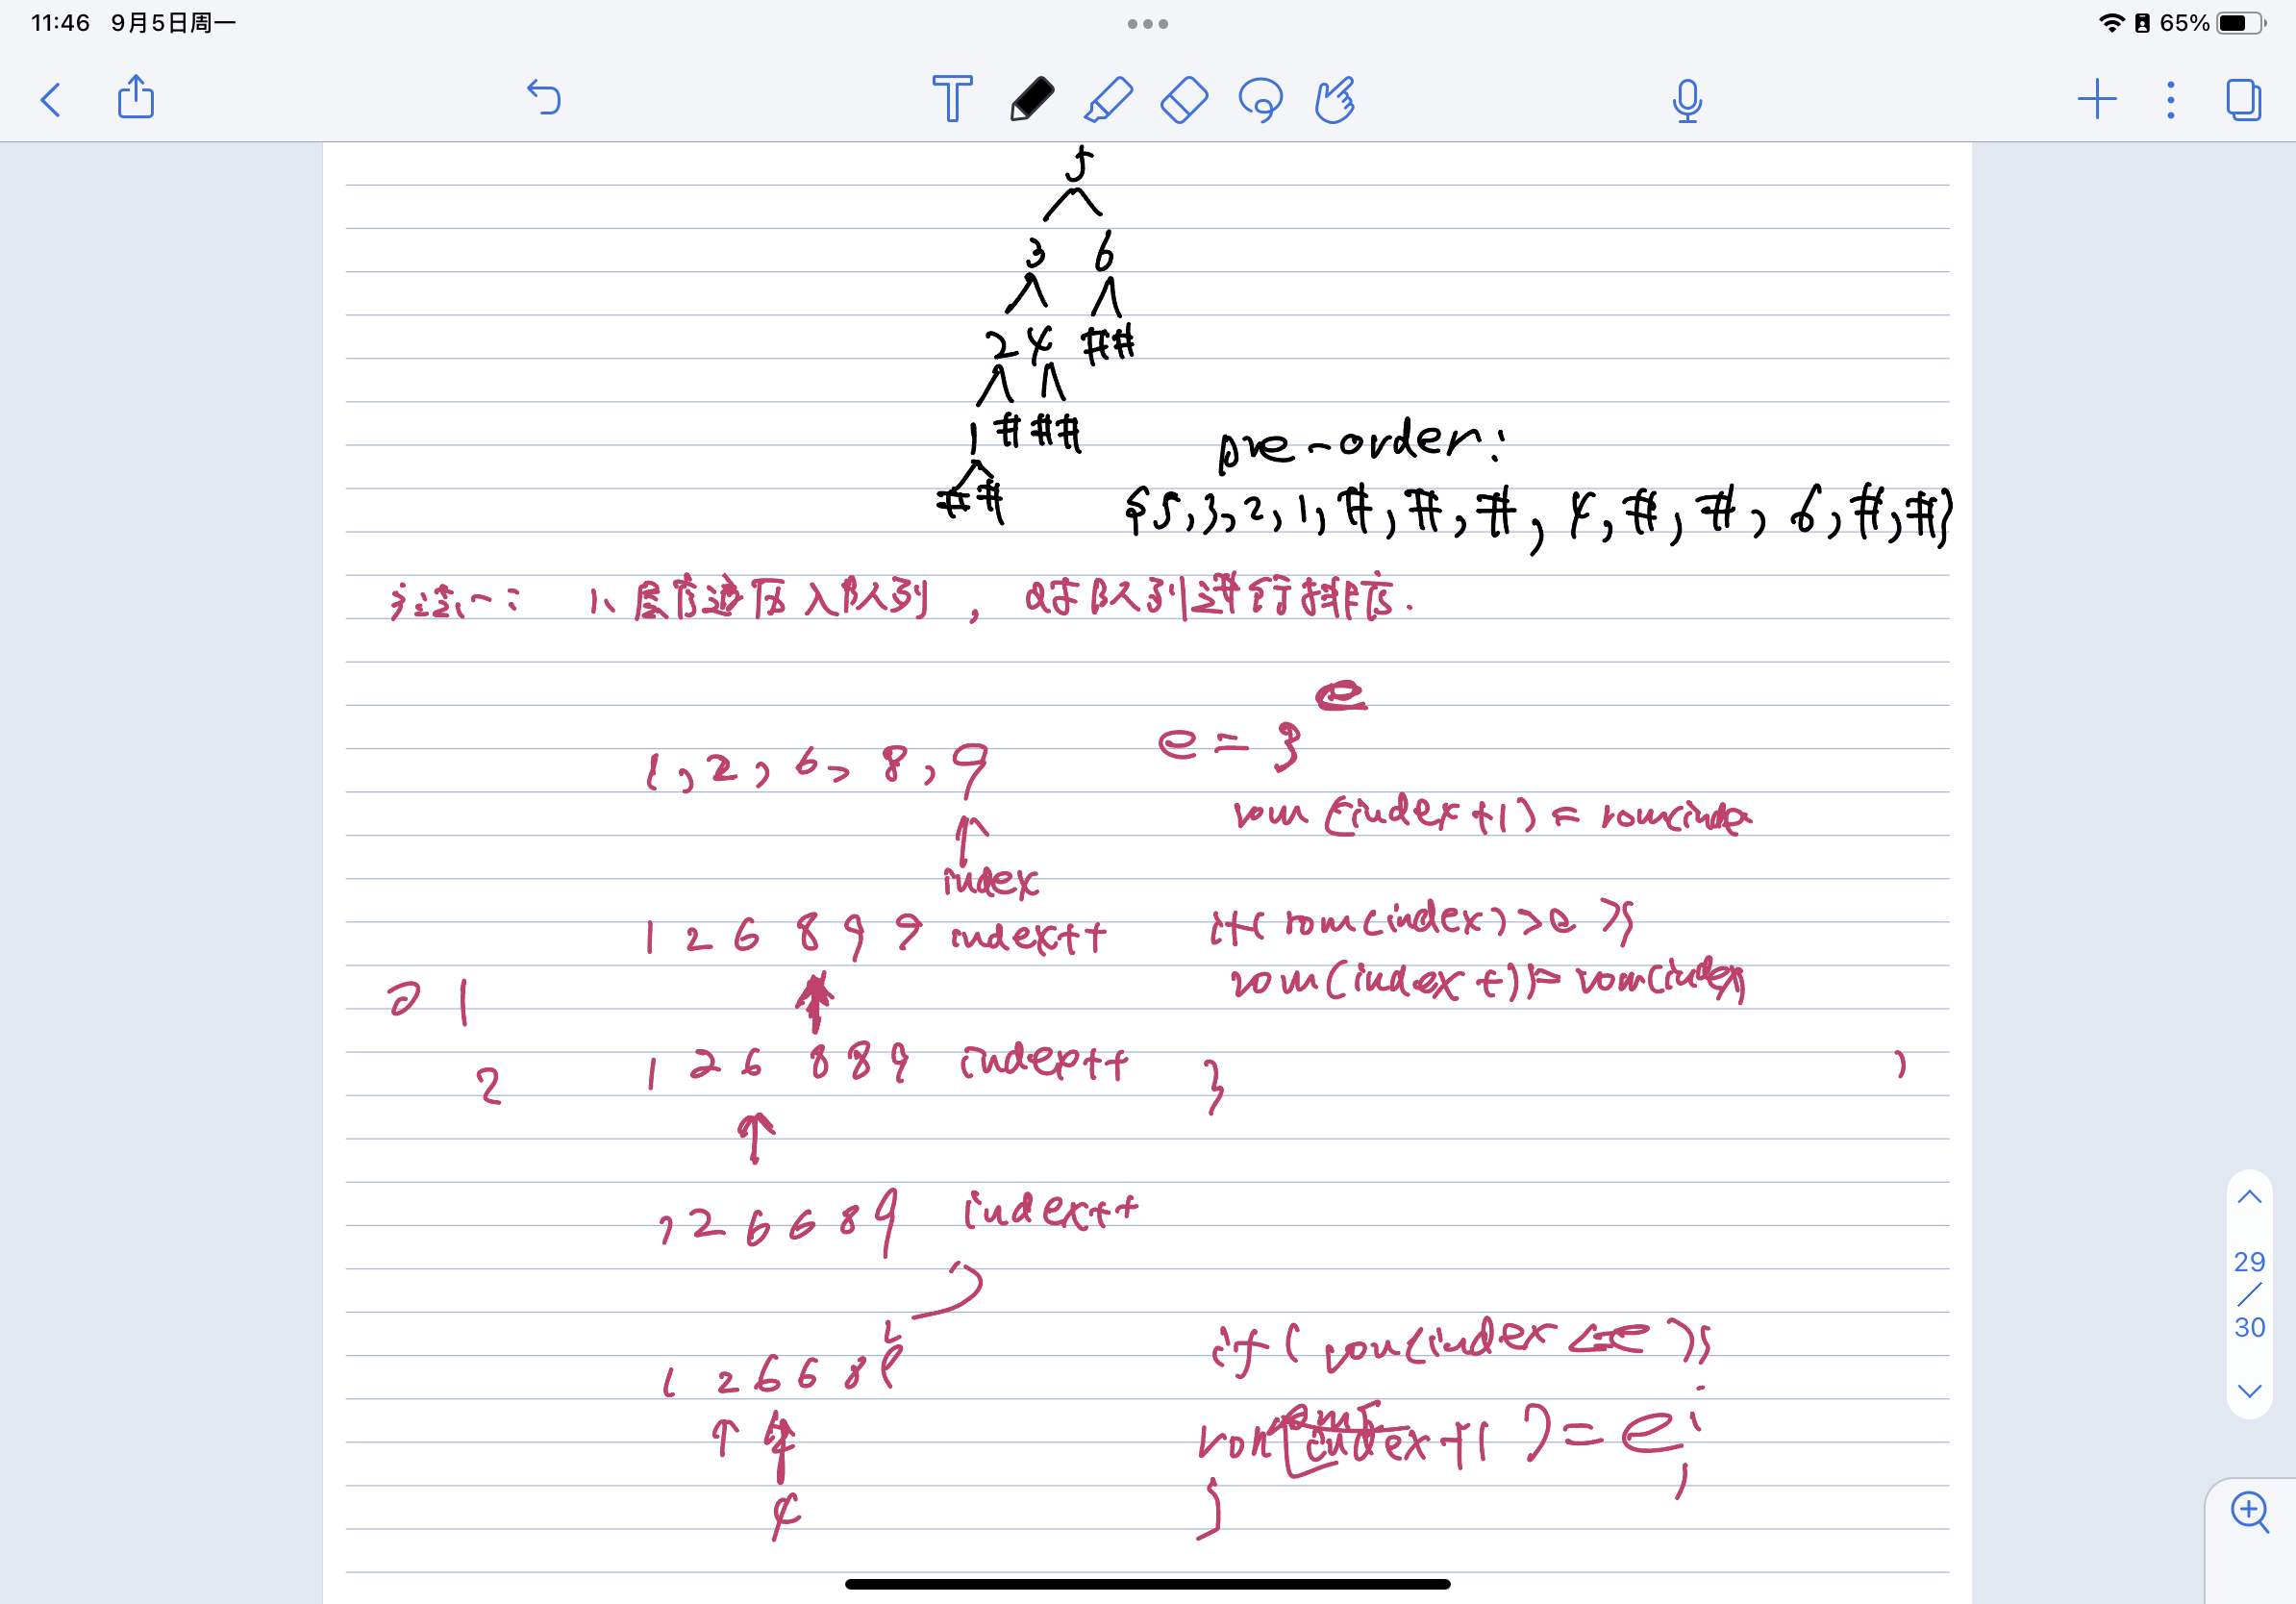 11:46 9月5日周一
65%
5
3 6
2 4 # #
1 # # #
# #
pre-order:
{5,3,2,1,#,#,#,4,#,#,6,#,#}
方法一: 1、层序遍历入队列,对队列进行排序.
e
e = 3
1,2,6,8,9
rom [index+1) = rom(inde
index
1 2 6 8 9 9 index++
if( rom(index)>e ){
rom(index+1)=rom(index)
2 1
1 2 6 8 8 9 index++
2
}
1 2 6 6 8 9 index++
if( rom(index <=e ){
1 2 6 6 8
rom[index+1 ) = e;
}
29
/
30